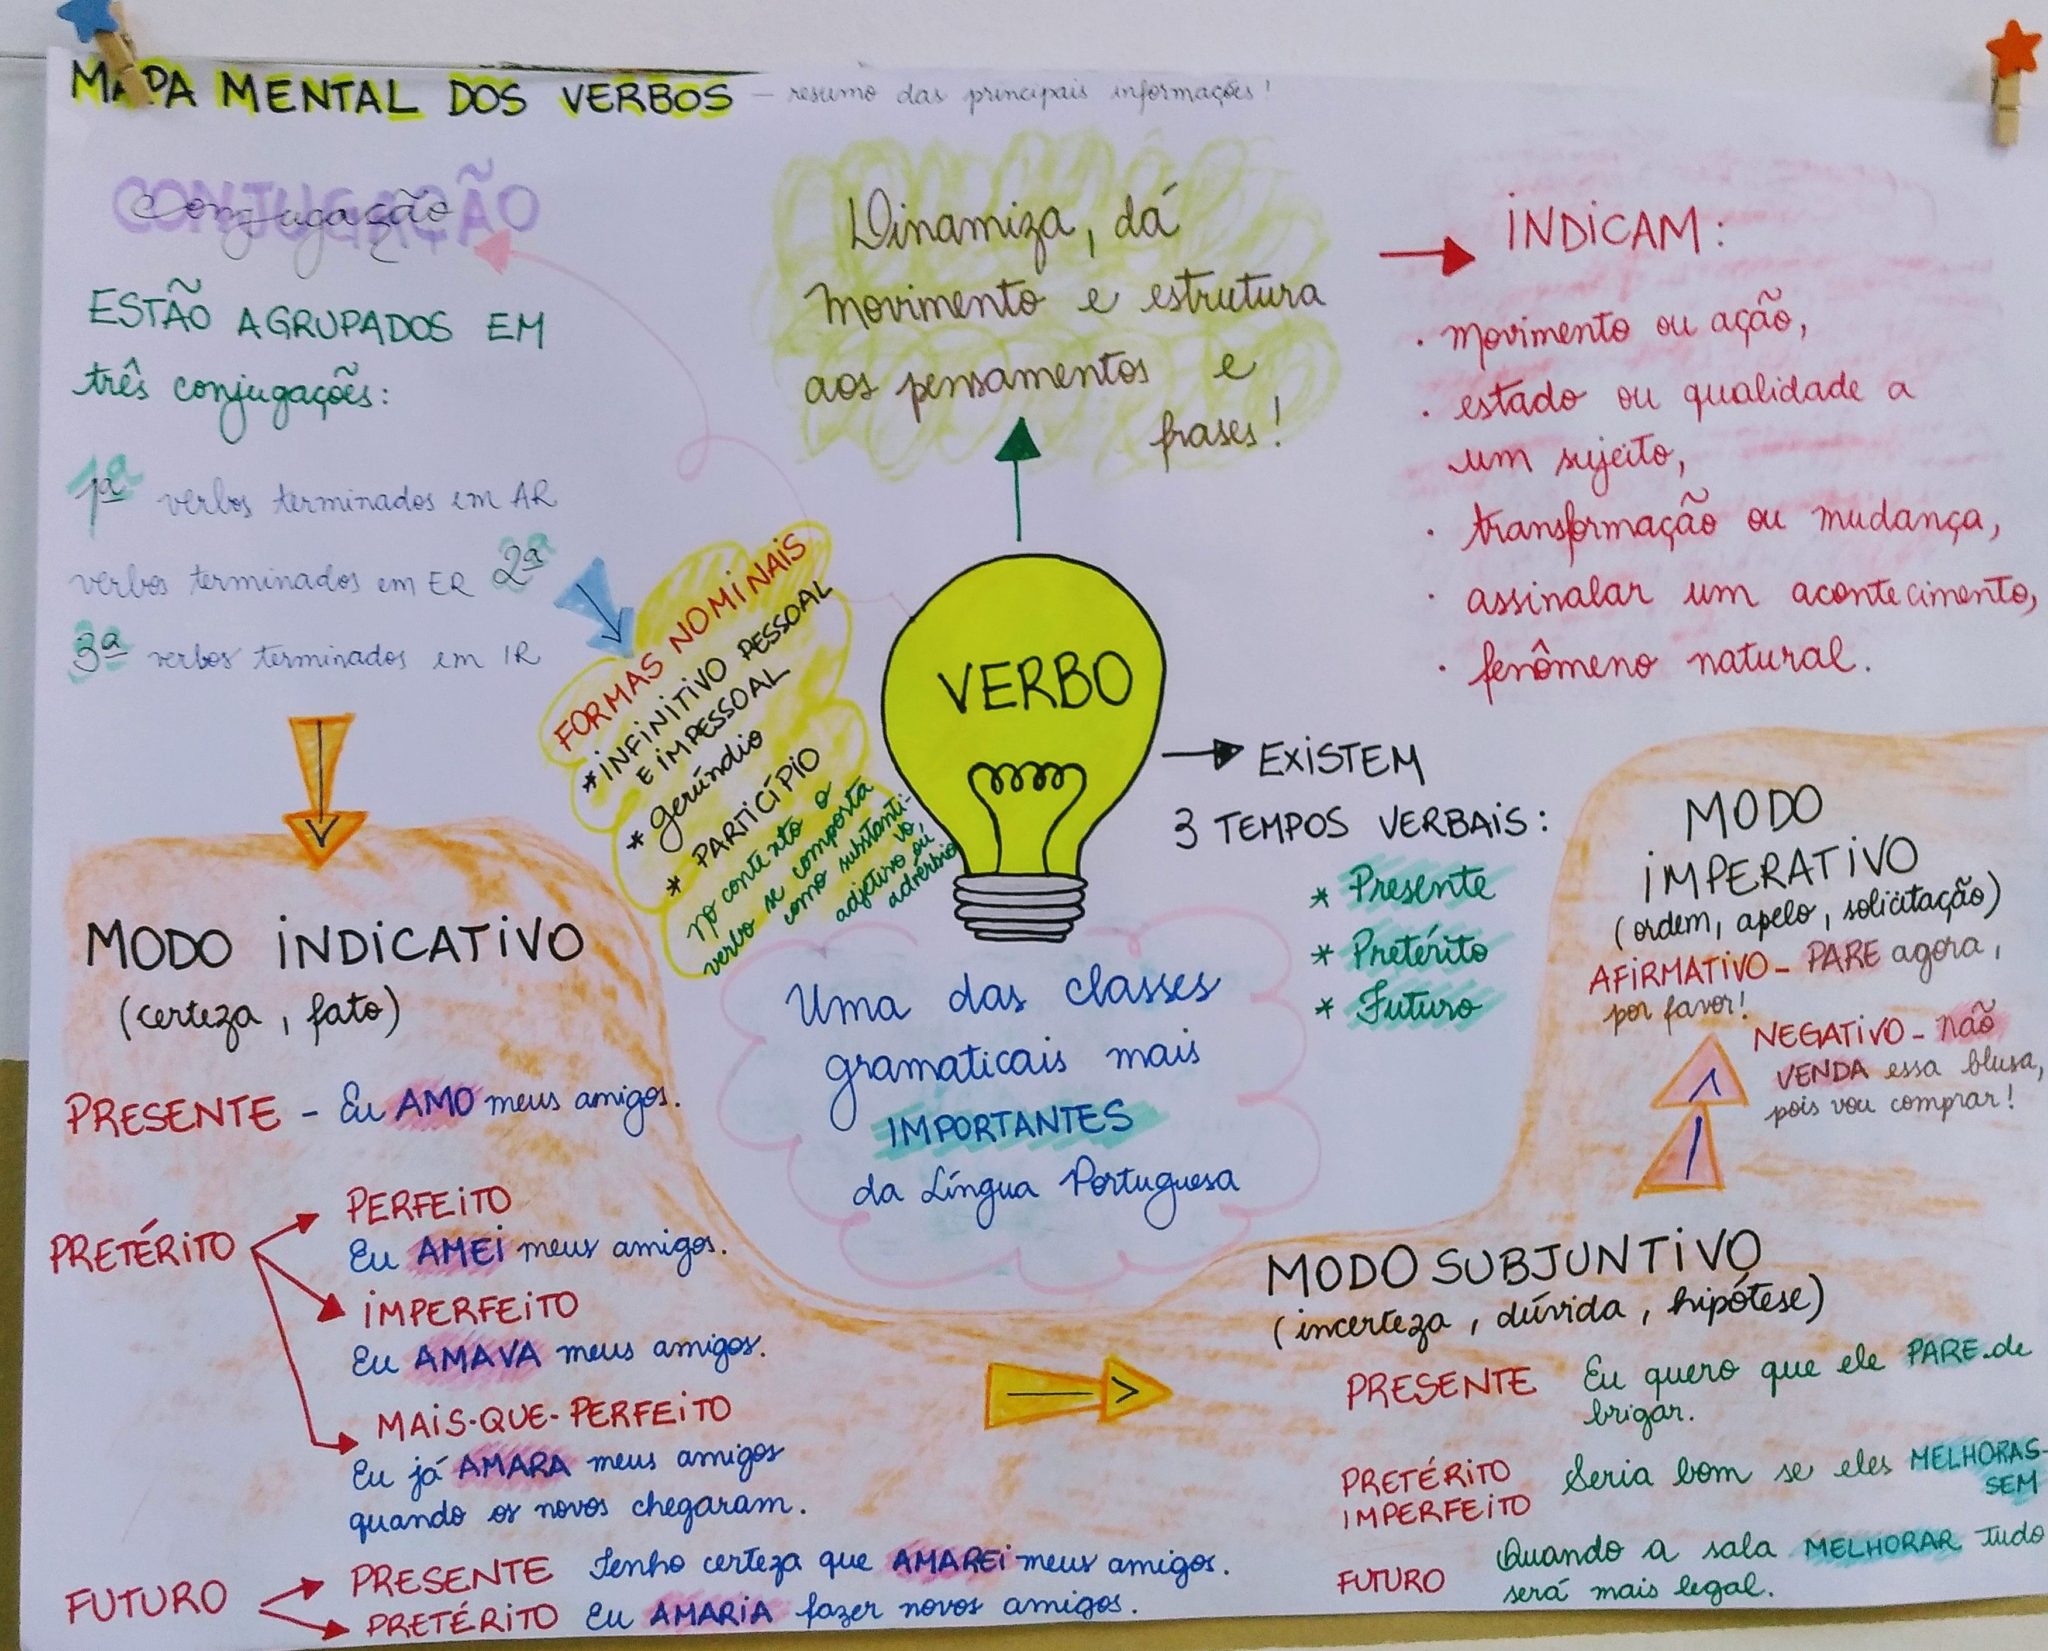 MAPA MENTAL DOS VERBOS – resumo das principais informações!
CONJUGAÇÃO
Conjugação
ESTÃO AGRUPADOS EM
três conjugações:
1ª verbos terminados em AR
verbos terminados em ER 2ª
3ª verbos terminados em IR
Dinamiza, dá
movimento e estrutura
aos pensamentos e
frases!
INDICAM:
· movimento ou ação,
· estado ou qualidade a
um sujeito,
· transformação ou mudança,
· assinalar um acontecimento,
· fenômeno natural.
FORMAS NOMINAIS
* INFINITIVO PESSOAL
E IMPESSOAL
* gerúndio
* PARTICÍPIO
no contexto o
verbo se comporta
como substanti-
vo
adjetivo ou
advérbio
VERBO
EXISTEM
3 TEMPOS VERBAIS:
* Presente
* Pretérito
* Futuro
Uma das classes
gramaticais mais
IMPORTANTES
da Língua Portuguesa
MODO INDICATIVO
(certeza, fato)
PRESENTE - Eu AMO meus amigos.
PRETÉRITO
PERFEITO
Eu AMEI meus amigos.
IMPERFEITO
Eu AMAVA meus amigos.
MAIS-QUE-PERFEITO
Eu já AMARA meus amigos
quando os novos chegaram.
FUTURO
PRESENTE Tenho certeza que AMAREI meus amigos.
PRETÉRITO Eu AMARIA fazer novos amigos.
MODO SUBJUNTIVO
(incerteza, dúvida, hipótese)
PRESENTE Eu quero que ele PARE de
brigar.
PRETÉRITO IMPERFEITO Seria bom se eles MELHORAS-
SEM
FUTURO Quando a sala MELHORAR tudo
será mais legal.
MODO
IMPERATIVO
(ordem, apelo, solicitação)
AFIRMATIVO - PARE agora,
por favor!
NEGATIVO - não
VENDA essa blusa,
pois vou comprar!